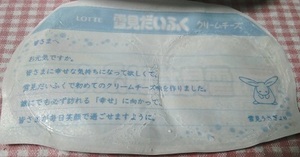 LOTTE
雪見だいふく
クリームチーズ
皆さまへ
お元気ですか。
皆さまに幸せな気持ちになって欲しくて、
雪見だいふくで初めてのクリームチーズ味を作りました。
誰にでも必ず訪れる「幸せ」に向かって、
皆さまが毎日笑顔で過ごせますように。
雪見うさぎより